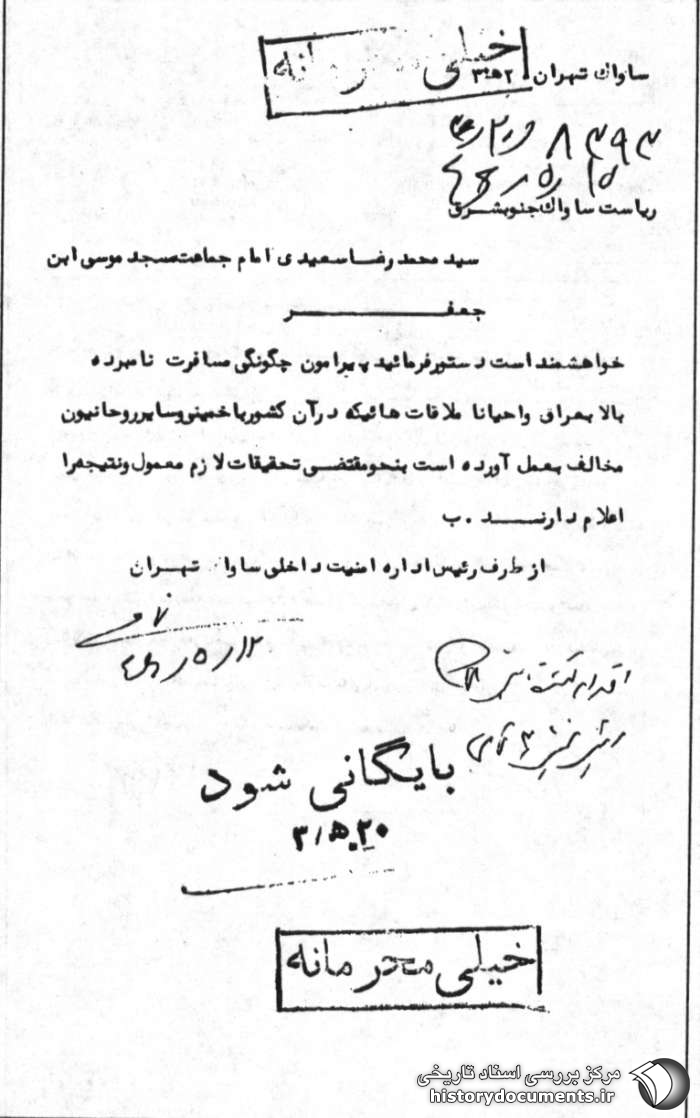 خیلی محرمانه
ساواک تهران ۳۵۲
ریاست ساواک جنوبشرق
سید محمد رضا سعیدی امام جماعت مسجد موسی ابن
جعفر
خواهشمند است دستور فرمائید پیرامون چگونگی مسافرت نامبرده
بالا بعراق واحیانا ملاقات هائیکه در آن کشور با خمینی و سایر روحانیون
مخالف بعمل آورده است بنحو مقتضی تحقیقات لازم معمول و نتیجه را
اعلام دارنــد . ب
از طرف رئیس اداره امنیت داخلی ساواک تهــران
۱۲ر۵ر۴۶
بایگانی شود
خیلی محرمانه
مرکز بررسی اسناد تاریخی
historydocuments.ir